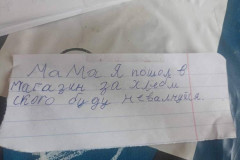 МаМа я пошол в
магазин за хлебом
скоро буду неволнуйся